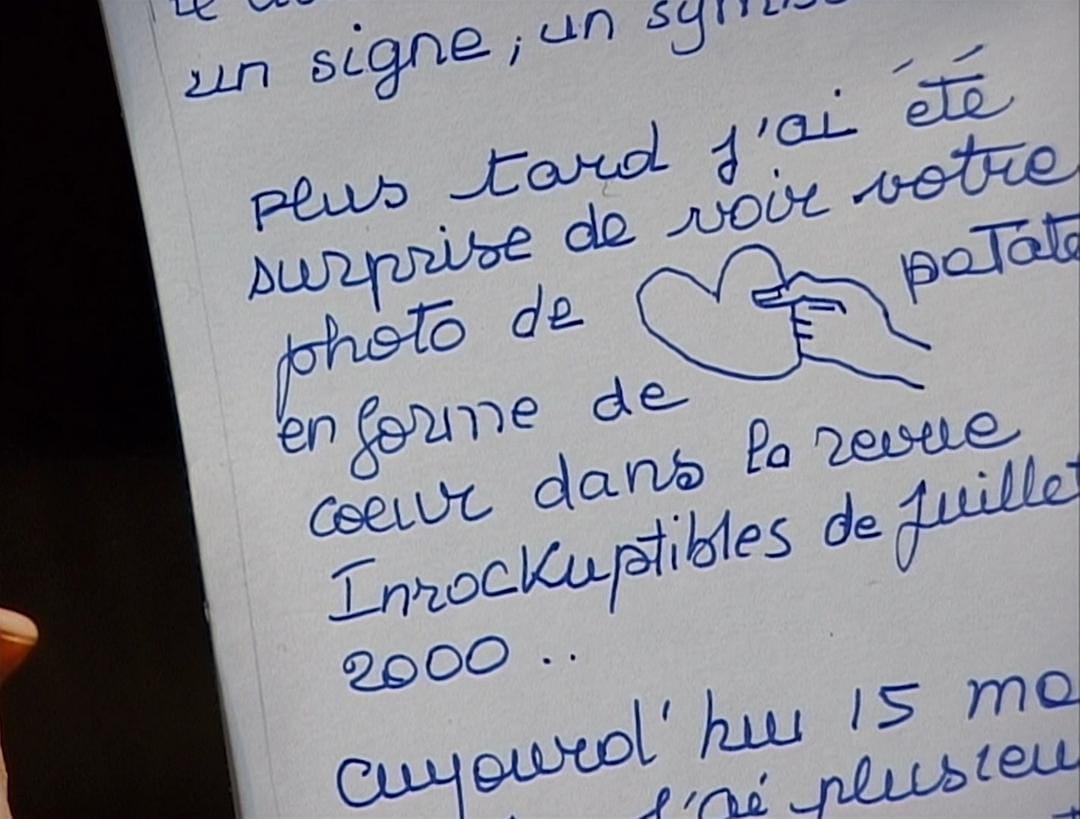 un signe, un
plus tard j'ai été
surprise de voir votre
photo de patate
en forme de
coeur dans la revue
Inrockuptibles de juillet
2000 ..
aujourd'hui 15
j'ai